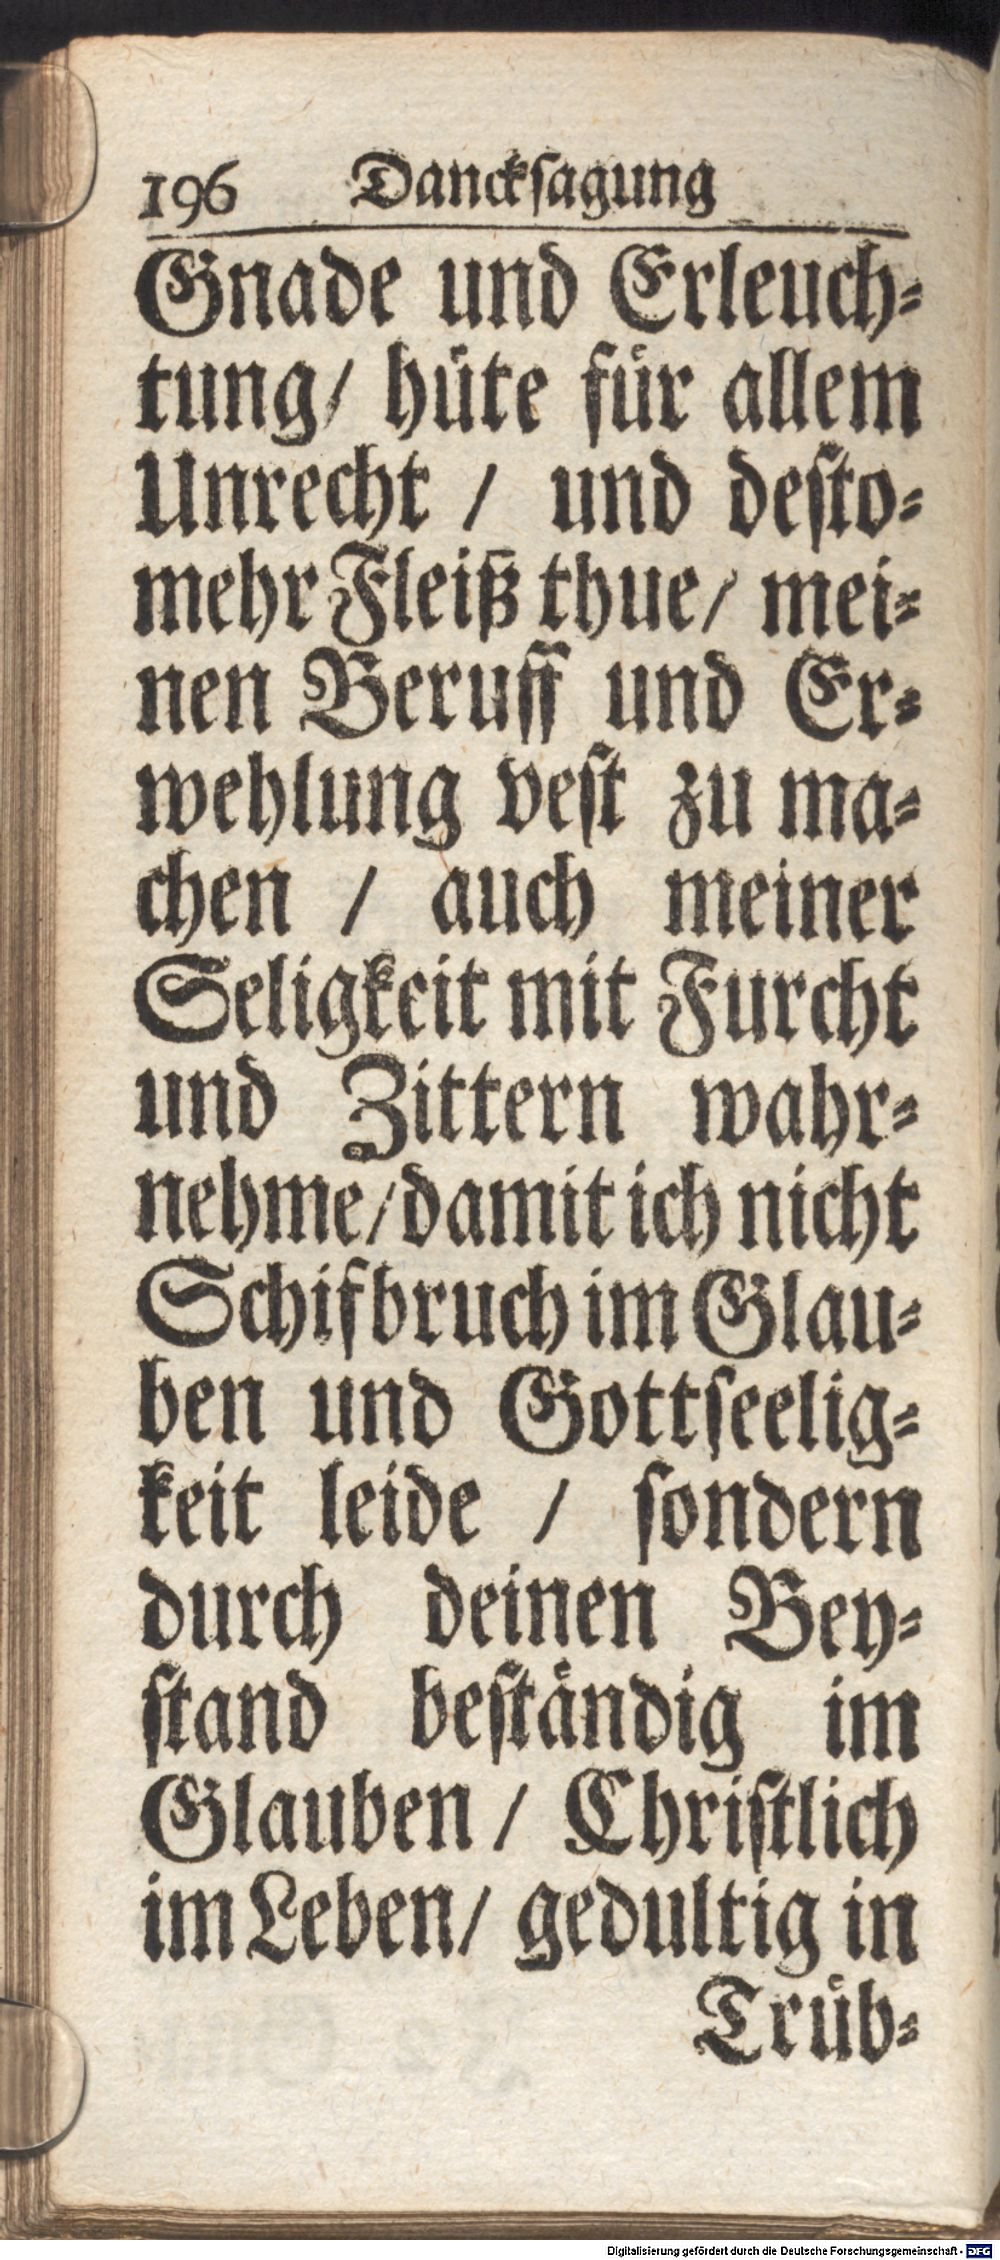 196 Danckſagung
Gnade und Erleuch⸗
tung/ huͤte fuͤr allem
Unrecht / und deſto⸗
mehr Fleiß thue/ mei⸗
nen Beruff und Er⸗
wehlung veſt zu ma⸗
chen / auch meiner
Seligkeit mit Furcht
und Zittern wahr⸗
nehme/damit ich nicht
Schifbruch im Glau⸗
ben und Gottſeelig⸗
keit leide / ſondern
durch deinen Bey⸗
ſtand beſtaͤndig im
Glauben / Chriſtlich
im Leben/ gedultig in
Truͤb⸗
Digitalisierung gefördert durch die Deutsche Forschungsgemeinschaft - DFG